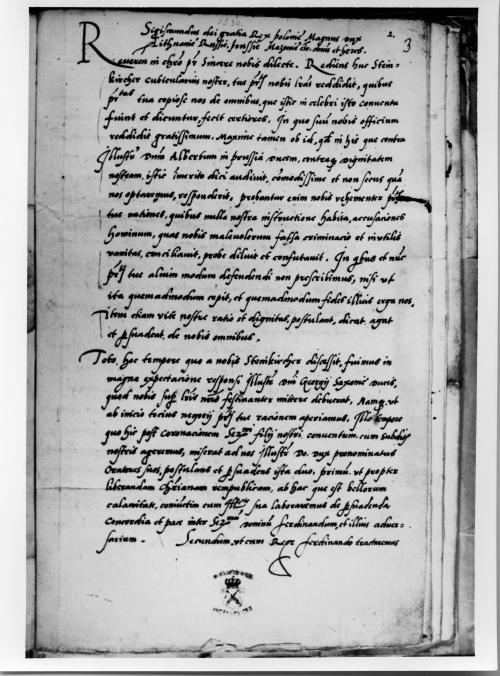 1530.
2.
3
Sigismundus dei gratia Rex polonie Magnus dux
Lithuanie Russie, prussie Masouie etc. dnus et heres.
Reueren in chro pr sincere nobis dilecte. Rediens huc Stein-
kircher cubicularius noster, tue ptis nobis lras reddidit, quibus
ptas tua copiose nos de omnibus, que istic in celebri isto conuentu
fiunt et dicuntur, fecit certiores. In quo suu nobis officium
reddidit gratissimum. Maxime tamen ob id, qd in his que contra
Illustr dnm Albertum in prussia ducem, contraq dignitatem
nostram, istic imerito dici audiuit, comodissime et non secus qua
nos optaremus, responderit, probantur enim nobis vehementer ptis
tue rationes, quibus nulla nostra instructione habita, accusationes
hominum, quas nobis maluolorum falsa criminacio et inutilis
vanitas, conciliauit, probe diluit et confutauit. In qbus et nuc
ptj tue alium modum defendendi non prescribimus, nisi vt
ita quemadmodum cepit, et quemadmodum fides illius erga nos,
Item etiam vite nostre ratio et dignitas, postulant, dicat, agat
et psuadeat, de nobis omnibus.
Toto, hoc tempore quo a nobis Steinkircher discessit, fuimus in
magna expectacione responsi Illustr dni Georgij Saxonie ducis,
quod nobis sup lris nris festinanter mittere debuerat, Namq, vt
ab inicio tocius negocij ptj tue racionem aperiamus, Illo tempore
quo hic post coronacionem Sermi filij nostri, conuentum cum subditis
nostris ageremus, miserat ad nos Illustr do. dux prenominatus
Oratores suos, postulans et psuadens ista duo, primu, vt propter
liberandam Chrianam rempublicam, ab hac que est bellorum
calamitate, coniuctim cum sua laboraremus de psuadenda
Concordia et pace inter Sermu dominu ferdinandum, et illius aduer-
sarium. Secundum, vt cum Rege ferdinando tractaremus